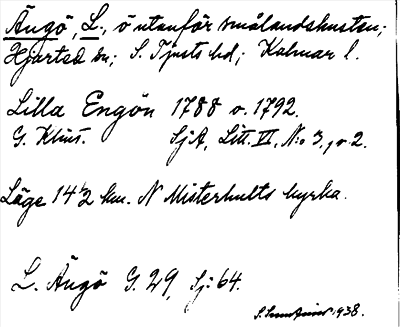 Ängö, L., ö utanför smålandskusten;
Hjorted sn; S. Tjusts hd; Kalmar l.
Lilla Engön 1788 o. 1792.
G. Klint. SjA, Litt. VI, N:o 3, o. 2.
Läge 14 1/2 km. N Misterhults kyrka.
L. Ängö G. 29, Sj: 64.
1938.